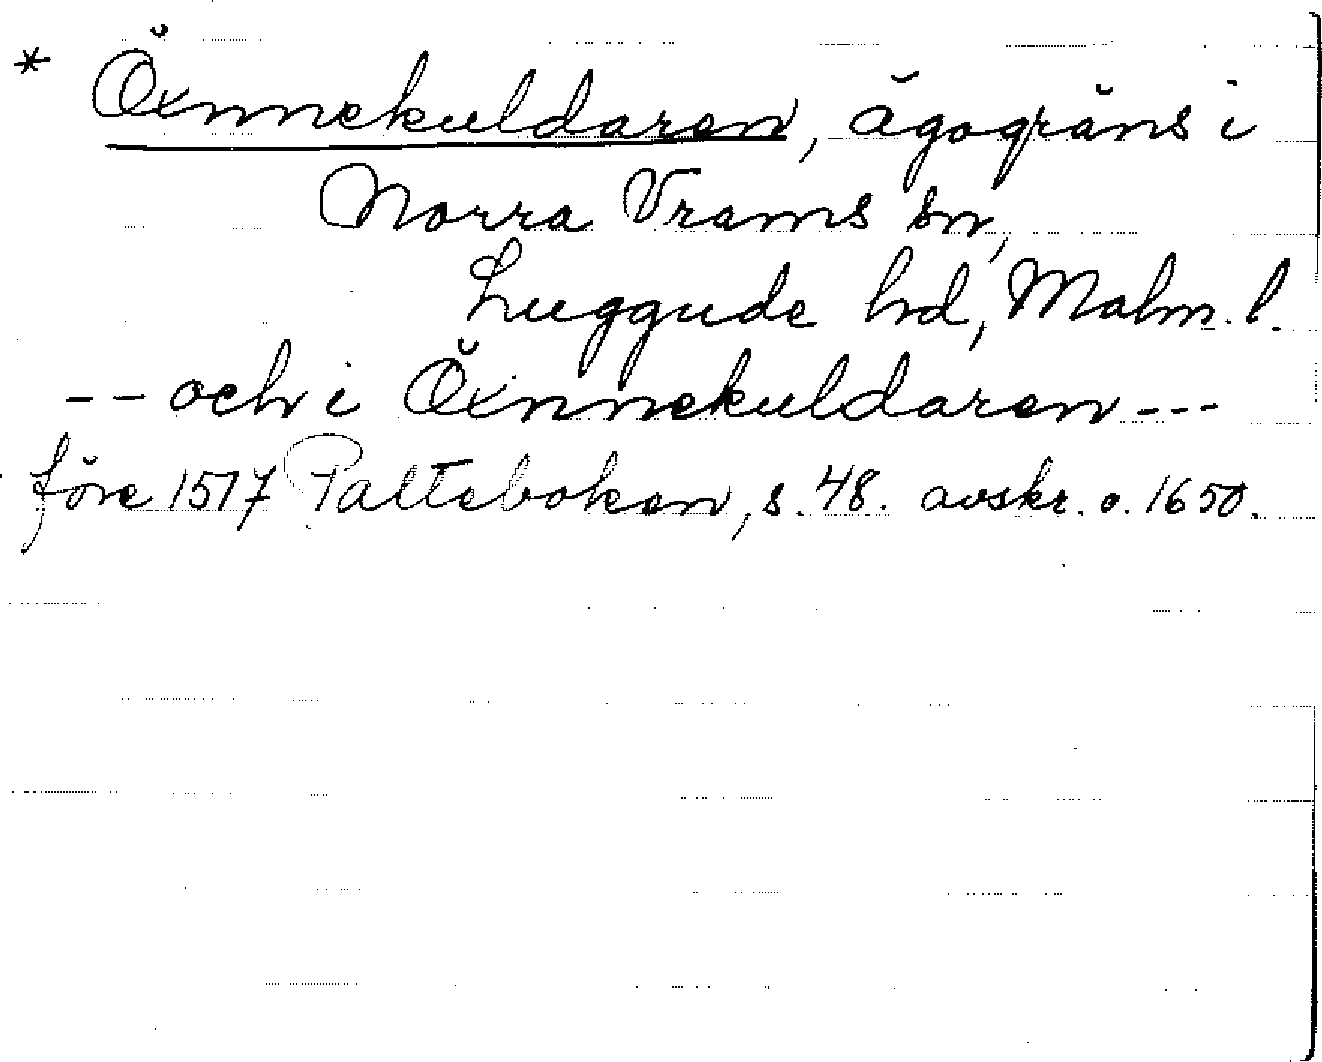 * Öxnnekuldaren, ägogräns i
Norra Vrams sn,
Luggude hd, Malm. l.
-- och i Öxnnekuldaren ---
före 1517 Palteboken, s. 48. avskr. o. 1650.